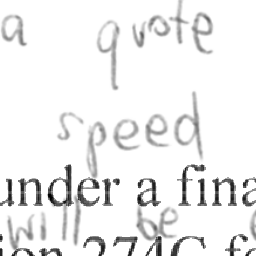 a quote
speed
under a fina
will be
ion 274G fo